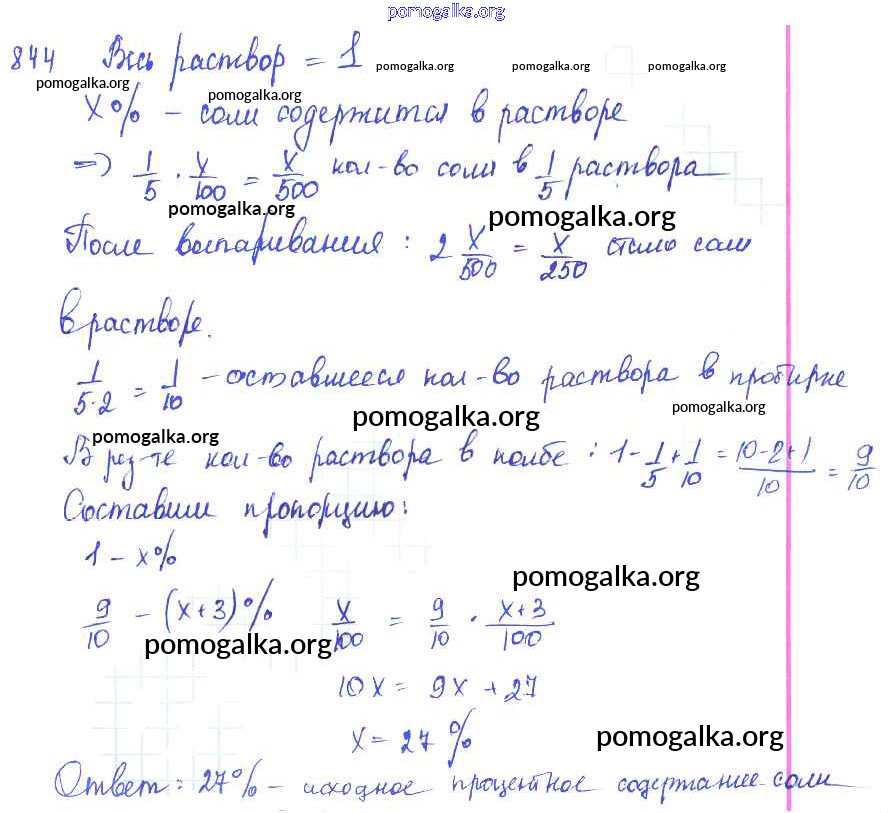 pomogalka.org
844 Весь раствор = 1 pomogalka.org pomogalka.org pomogalka.org
pomogalka.org
x% – соли содержится в растворе pomogalka.org
=> 1/5 · x/100 = x/500 кол-во соли в 1/5 раствора
pomogalka.org
pomogalka.org
После выпаривания : 2 x/500 = x/250 стало соли
в растворе.
1/5·2 = 1/10 – оставшееся кол-во раствора в пробирке
pomogalka.org pomogalka.org
pomogalka.org
В рез-те кол-во раствора в колбе : 1-1/5+1/10 = 10-2+1/10 = 9/10
Составим пропорцию:
1 – x%
pomogalka.org
9/10 – (x+3)% x/100 = 9/10 · x+3/100
pomogalka.org
10x = 9x + 27
x = 27 %
pomogalka.org
Ответ: 27% – исходное процентное содержание соли